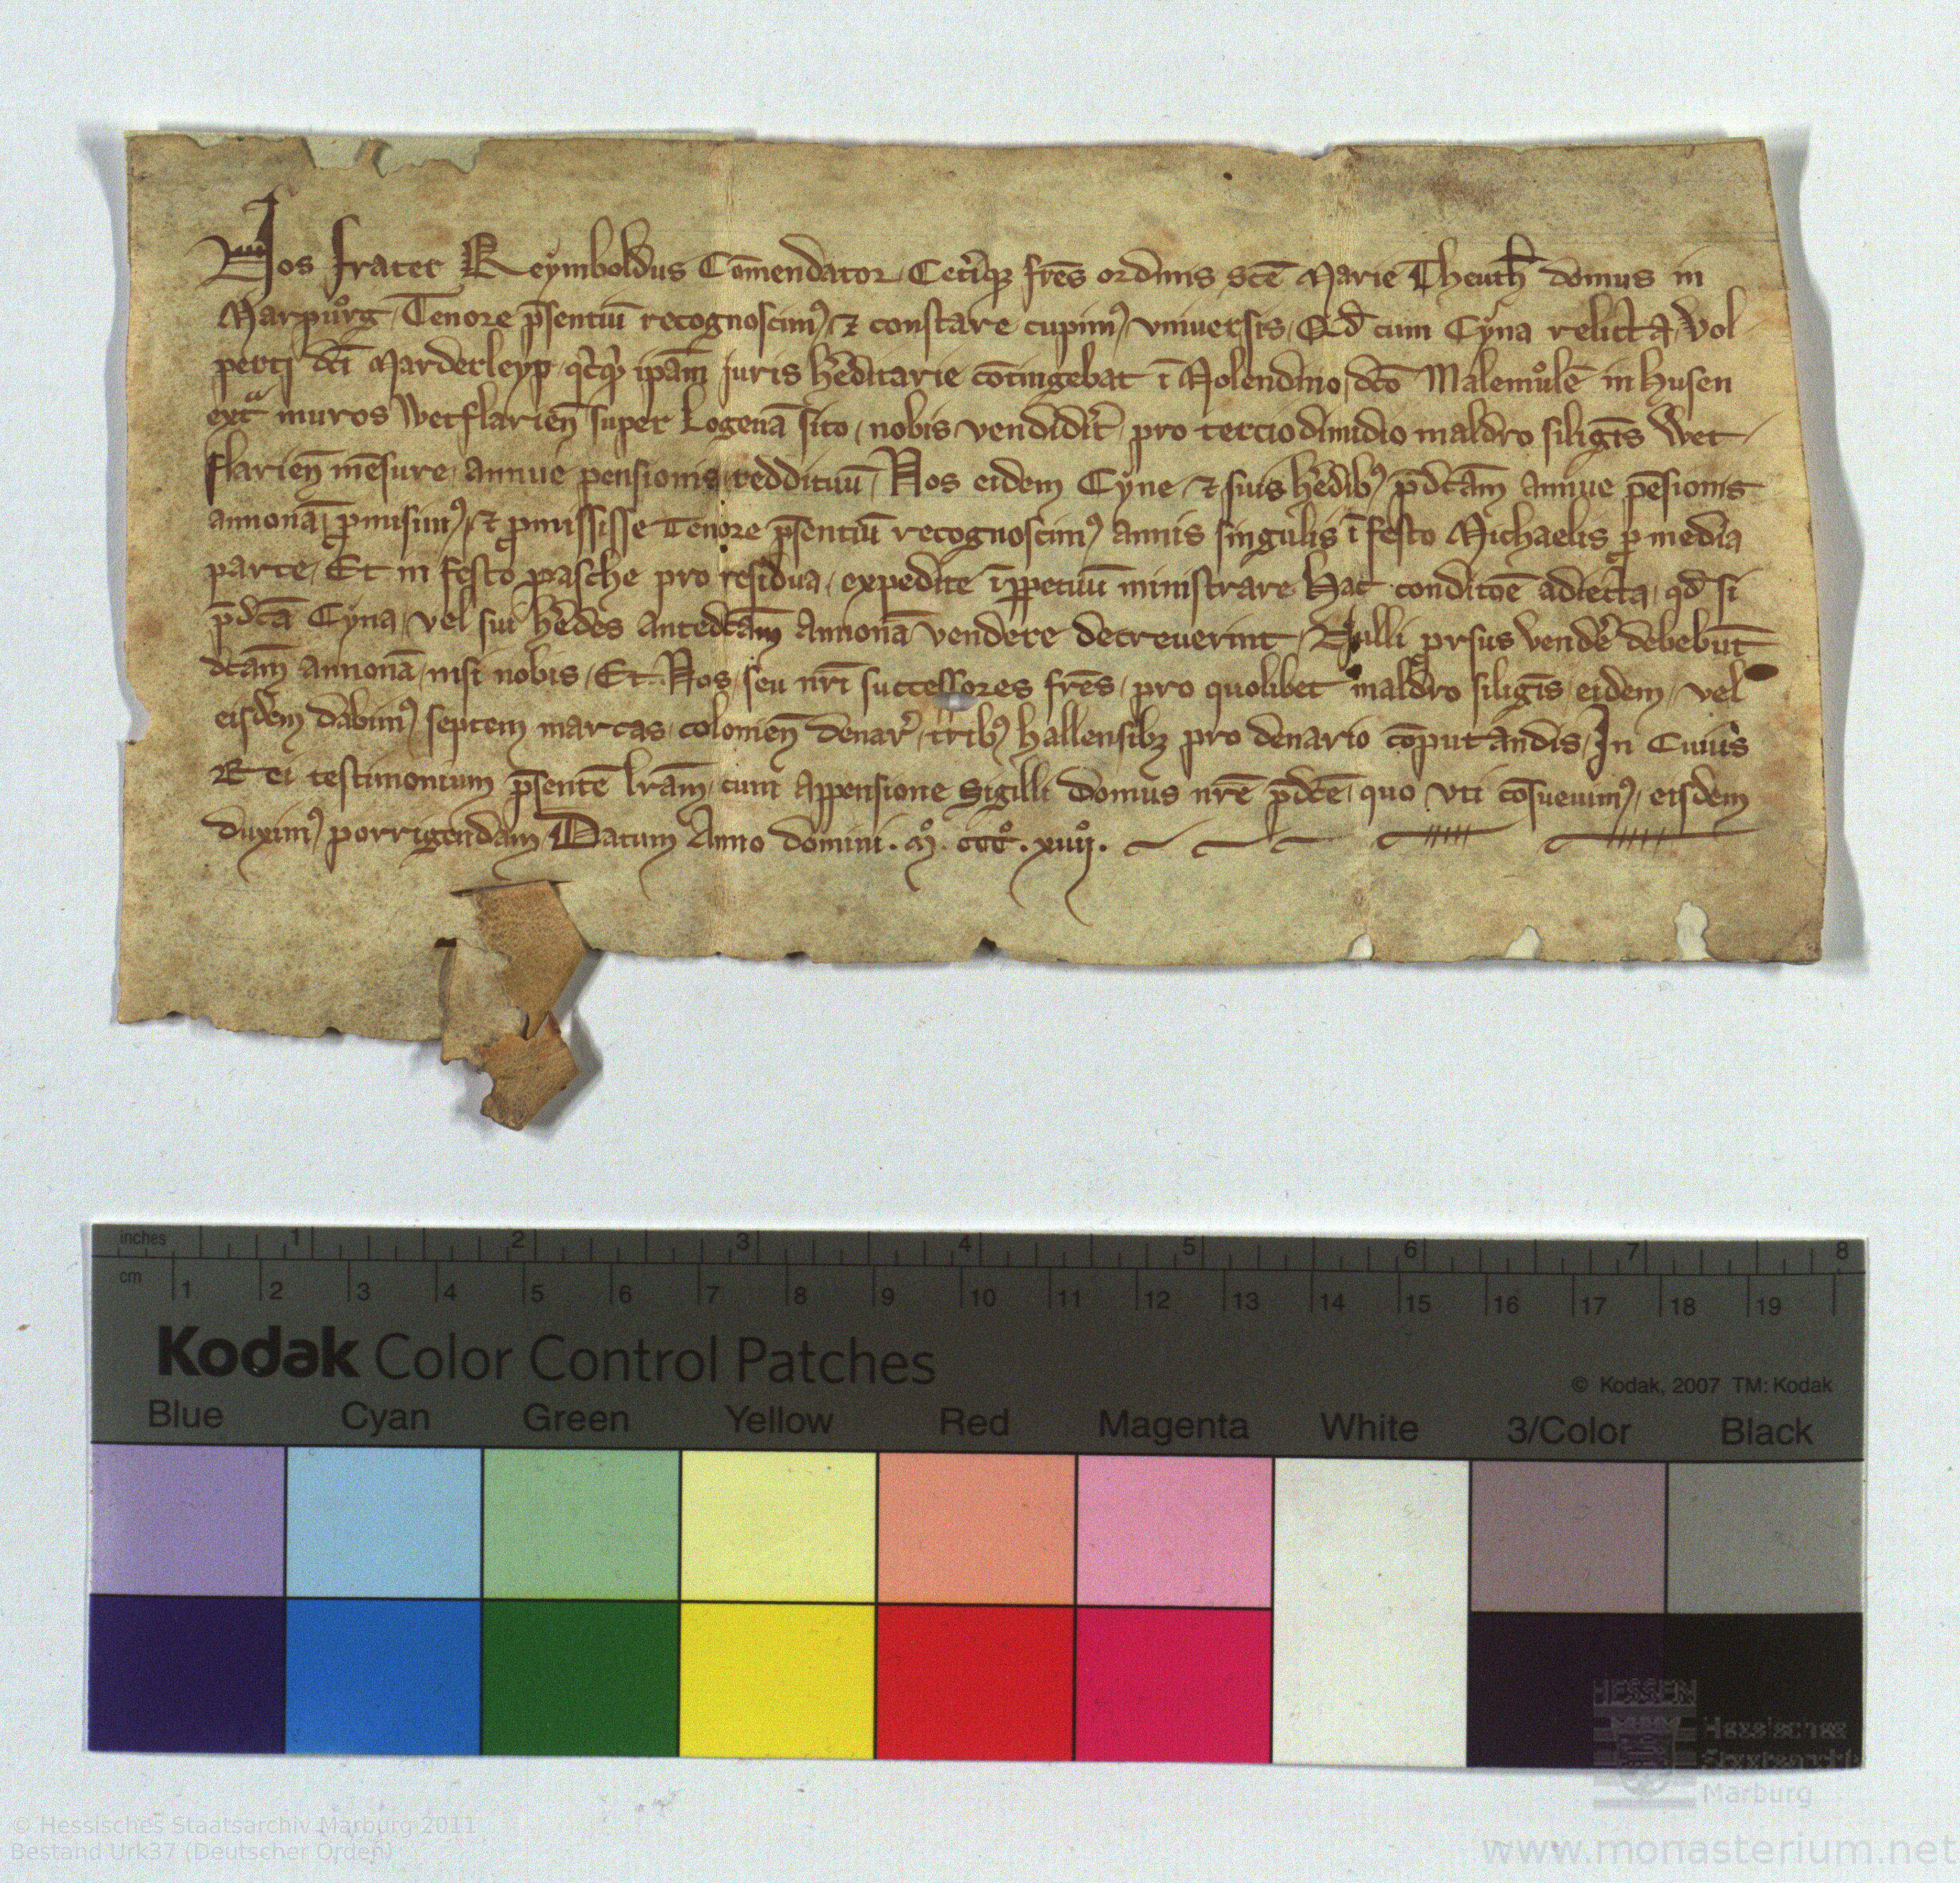 Nos frater Reymboldus Cōmendator Ceteriqꝫ frēs ordinis scē Marie Theuth̄ domus in
Marpůrg Tenore p̄sentiū recognoscimꝰ ⁊ constare cupimꝰ vniuersis Qd̄ cum Cẏna relicta Vol
perti dc̄i Marderleyp ipām iuris h̄editarie cōtingebat ī Molendino dc̄o Malemůlē in husen
extᵃ muros Wetflarien̄ super Logenā sito nobis vendidit̄ pro terciodimidio maldro siligīs Wet
flarien̄ mēsure annue pensionis reddituū Nos eidem Cẏne ⁊ suis h̄edibꝰ p̄dc̄am annue pēsionis
annonā ꝓmisimꝰ ⁊ ꝓmississe Tenore p̄sentiū recognoscimꝰ annis singulis ī festo Michaelis ꝓ media
parte Et in festo pasche pro residua expedite īꝑpetuū ministrare Hac conditōe adiecta qd̄ si
p̄dc̄a Cyna vel sui h̄edes antedc̄am annonā vendere decreuerint Nulli ꝓrsus vendē debebūt
dc̄am annonā nisi nobis Et Nos seu nr̄i successores frēs pro quolibet maldro siligīs eidem vel
eisdem dabimꝰ septem marcas colonien̄ denar̄ tribꝰ hallensibꝫ pro denario cōputandis In Cuius
Rei testimonium p̄sentē lr̄am cum appensione Sigilli domus nr̄e p̄dc̄e quo vti cōsueuimꝰ eisdem
duximꝰ porrigendam Datum Anno domini . mͦ . cccͦ . xiiijͦ .
inches 1 2 3 4 5 6 7 8
cm 1 2 3 4 5 6 7 8 9 10 11 12 13 14 15 16 17 18 19
Kodak Color Control Patches
© Kodak, 2007 TM: Kodak
Blue Cyan Green Yellow Red Magenta White 3/Color Black
HESSEN
Hessisches
Staatsarchiv
Marburg
© Hessisches Staatsarchiv Marburg 2011
Bestand Urk37 (Deutscher Orden)
www.monasterium.net